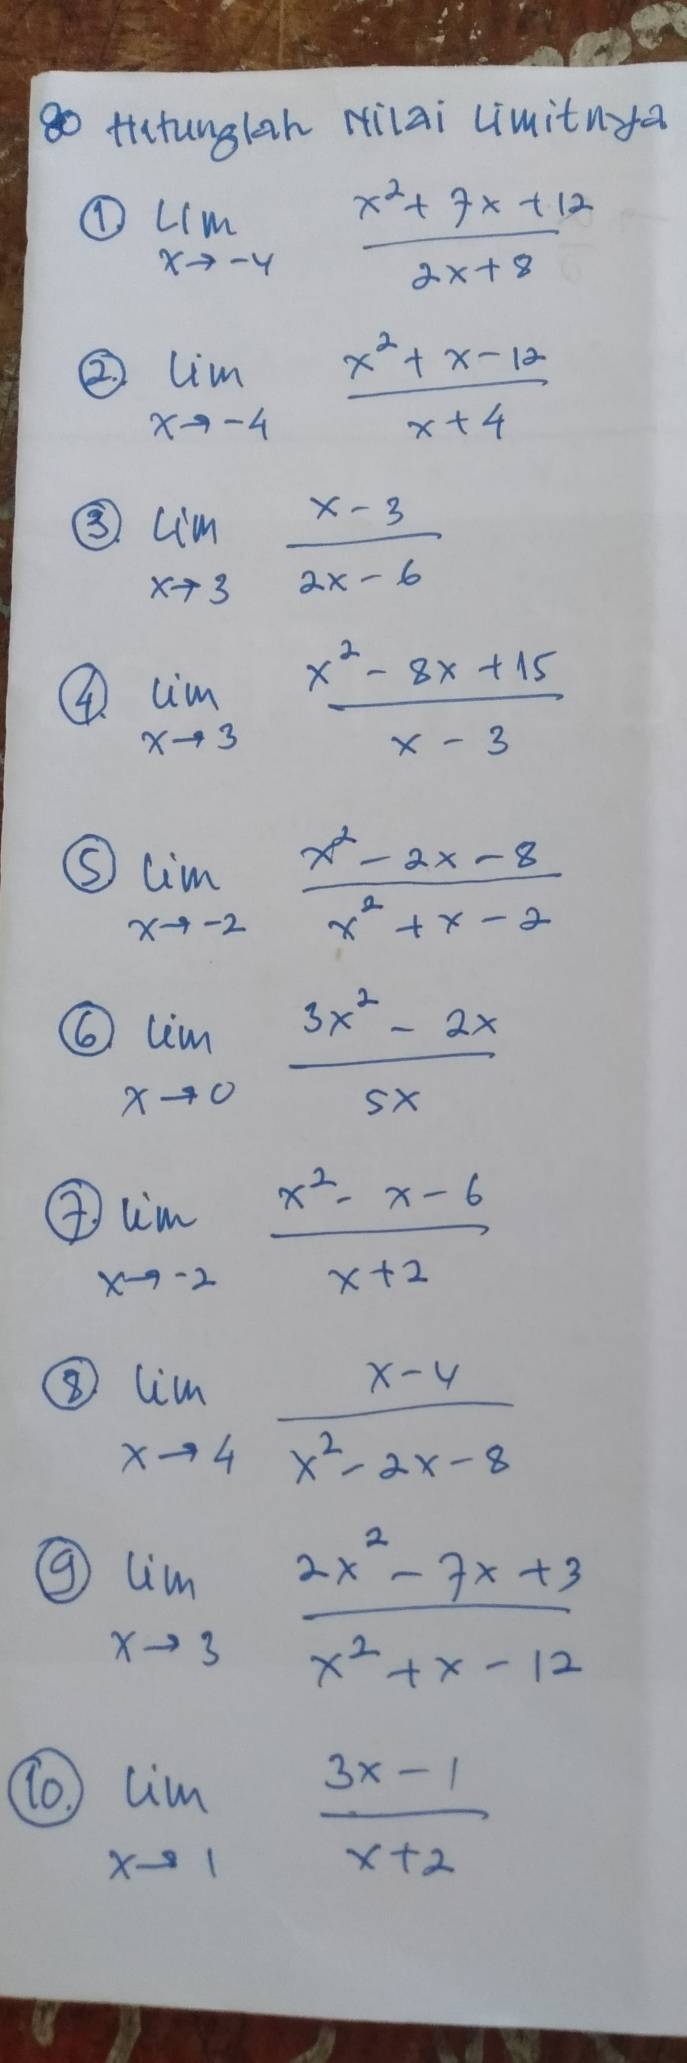 Hitunglah Nilai Limitnya
① Lim x²+7x+12
x→-4 2x+8
②. lim x²+x-12
x→-4 x+4
③. Lim x-3
x→3 2x-6
④. lim x²-8x+15
x→3 x-3
⑤ lim x²-2x-8
x→-2 x²+x-2
⑥ lim 3x²-2x
x→0 5x
⑦. lim x²-x-6
x→-2 x+2
⑧. lim x-4
x→4 x²-2x-8
⑨ lim 2x²-7x+3
x→3 x²+x-12
⑩. lim 3x-1
x→1 x+2